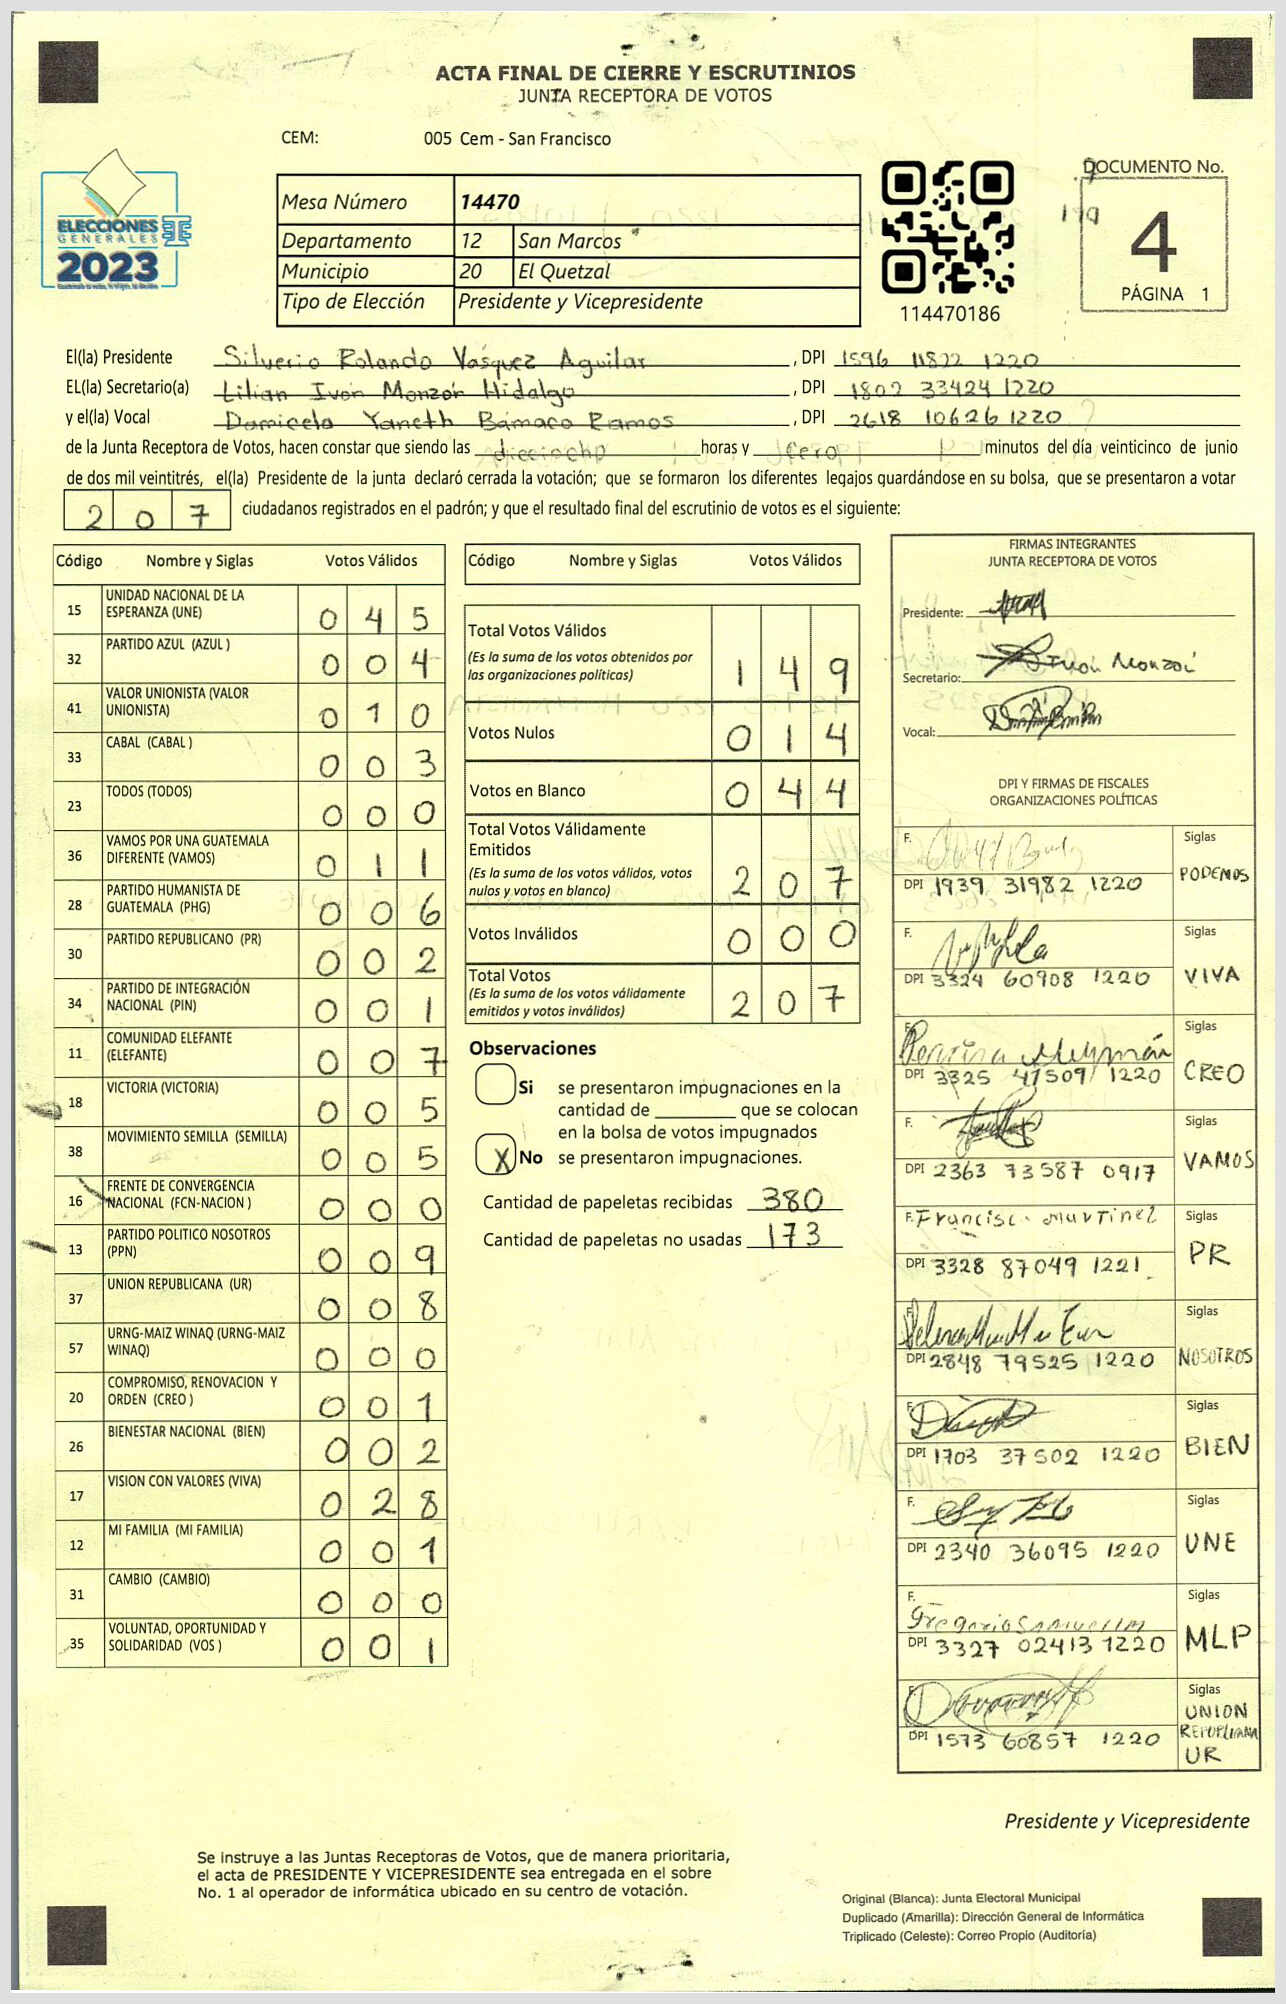 ACTA FINAL DE CIERRE Y ESCRUTINIOS
JUNTA RECEPTORA DE VOTOS
CEM: 005 Cem - San Francisco
ELECCIONES
GENERALES
2023
Mesa Número 14470
Departamento 12 San Marcos
Municipio 20 El Quetzal
Tipo de Elección Presidente y Vicepresidente
114470186
DOCUMENTO No.
4
PÁGINA 1
El(la) Presidente Silverio Rolando Vasquez Aguilar, DPI 1596 11822 1220
EL(la) Secretario(a) Lilian Ivon Monzón Hidalgo, DPI 1802 33424 1220
y el(la) Vocal Damicela Yaneth Bámaco Ramos, DPI 2618 10626 1220
de la Junta Receptora de Votos, hacen constar que siendo las dieciocho horas y cero minutos del día veinticinco de junio
de dos mil veintitrés, el(la) Presidente de la junta declaró cerrada la votación; que se formaron los diferentes legajos guardándose en su bolsa, que se presentaron a votar
207 ciudadanos registrados en el padrón; y que el resultado final del escrutinio de votos es el siguiente:
Código Nombre y Siglas Votos Válidos
15 UNIDAD NACIONAL DE LA ESPERANZA (UNE) 045
32 PARTIDO AZUL (AZUL ) 004
41 VALOR UNIONISTA (VALOR UNIONISTA) 010
33 CABAL (CABAL ) 003
23 TODOS (TODOS) 000
36 VAMOS POR UNA GUATEMALA DIFERENTE (VAMOS) 011
28 PARTIDO HUMANISTA DE GUATEMALA (PHG) 006
30 PARTIDO REPUBLICANO (PR) 002
34 PARTIDO DE INTEGRACIÓN NACIONAL (PIN) 001
11 COMUNIDAD ELEFANTE (ELEFANTE) 007
18 VICTORIA (VICTORIA) 005
38 MOVIMIENTO SEMILLA (SEMILLA) 005
16 FRENTE DE CONVERGENCIA NACIONAL (FCN-NACION ) 000
13 PARTIDO POLITICO NOSOTROS (PPN) 009
37 UNION REPUBLICANA (UR) 008
57 URNG-MAIZ WINAQ (URNG-MAIZ WINAQ) 000
20 COMPROMISO, RENOVACION Y ORDEN (CREO ) 001
26 BIENESTAR NACIONAL (BIEN) 002
17 VISION CON VALORES (VIVA) 028
12 MI FAMILIA (MI FAMILIA) 001
31 CAMBIO (CAMBIO) 000
35 VOLUNTAD, OPORTUNIDAD Y SOLIDARIDAD (VOS ) 001
Código Nombre y Siglas Votos Válidos
Total Votos Válidos
(Es la suma de los votos obtenidos por
las organizaciones políticas) 149
Votos Nulos 014
Votos en Blanco 044
Total Votos Válidamente
Emitidos
(Es la suma de los votos válidos, votos
nulos y votos en blanco) 207
Votos Inválidos 000
Total Votos
(Es la suma de los votos válidamente
emitidos y votos inválidos) 207
Observaciones
Si se presentaron impugnaciones en la
cantidad de ________ que se colocan
en la bolsa de votos impugnados
X No se presentaron impugnaciones.
Cantidad de papeletas recibidas 380
Cantidad de papeletas no usadas 173
FIRMAS INTEGRANTES
JUNTA RECEPTORA DE VOTOS
Presidente:
Secretario: Ivon Monzón
Vocal:
DPI Y FIRMAS DE FISCALES
ORGANIZACIONES POLÍTICAS
F. Siglas
DPI 1939 31982 1220 PODEMOS
F. Siglas
DPI 3324 60908 1220 VIVA
F. Siglas
DPI 3325 47509 1220 CREO
F. Siglas
DPI 2363 73587 0917 VAMOS
F. Francisc Martinez Siglas
DPI 3328 87049 1221 PR
F. Siglas
DPI 2848 79525 1220 NOSOTROS
F. Siglas
DPI 1703 37502 1220 BIEN
F. Siglas
DPI 2340 36095 1220 UNE
F. Siglas
DPI 3327 02413 1220 MLP
F. Siglas
DPI 1573 60857 1220 UNION
REPUPLIANA
UR
Presidente y Vicepresidente
Se instruye a las Juntas Receptoras de Votos, que de manera prioritaria,
el acta de PRESIDENTE Y VICEPRESIDENTE sea entregada en el sobre
No. 1 al operador de informática ubicado en su centro de votación.
Original (Blanca): Junta Electoral Municipal
Duplicado (Amarilla): Dirección General de Informática
Triplicado (Celeste): Correo Propio (Auditoría)